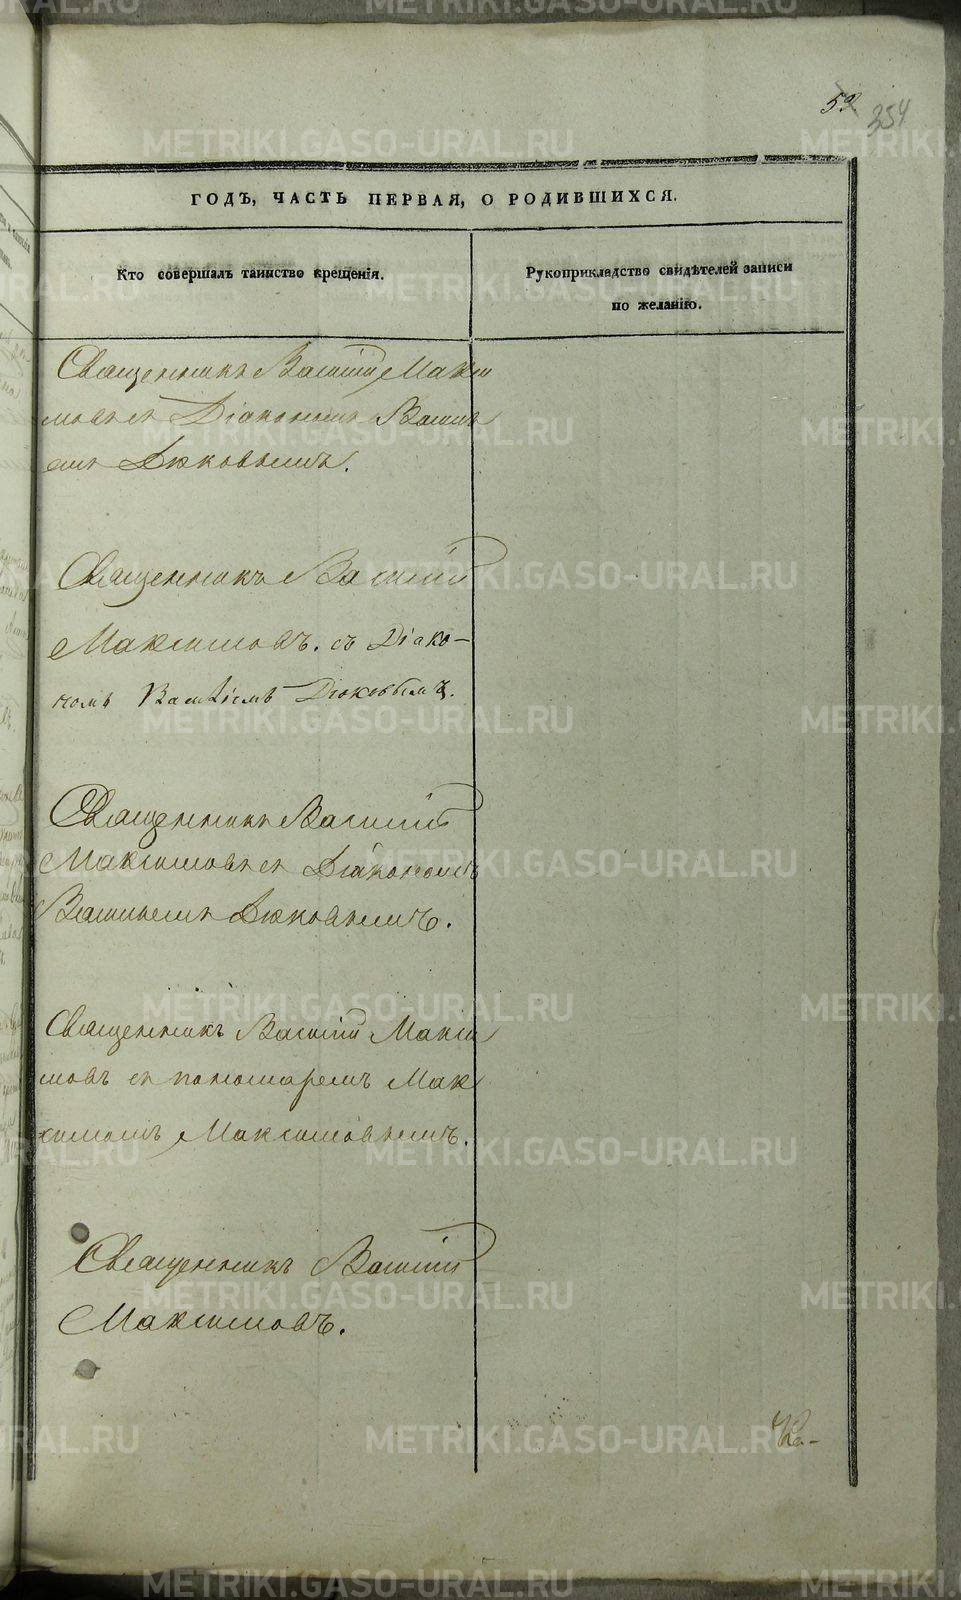 354
ГОДЪ, ЧАСТЬ ПЕРВАЯ, О РОДИВШИХСЯ.
Кто совершалъ таинство крещенія.
Рукоприкладство свидѣтелей записи
по желанію.
Священникъ Василій Макси
мовъ съ Діакономъ Василь
емъ Дюковымъ.
Священникъ Василій
Максимовъ. съ Діако-
номъ Василіемъ Дюковымъ.
Священникъ Василій
Максимовъ съ Діакономъ
Васильемъ Дюковымъ.
Священникъ Василій Макси
мовъ съ пономаремъ Мак
симомъ Максимовымъ.
Священникъ Василій
Максимовъ.
METRIKI.GASO-URAL.RU